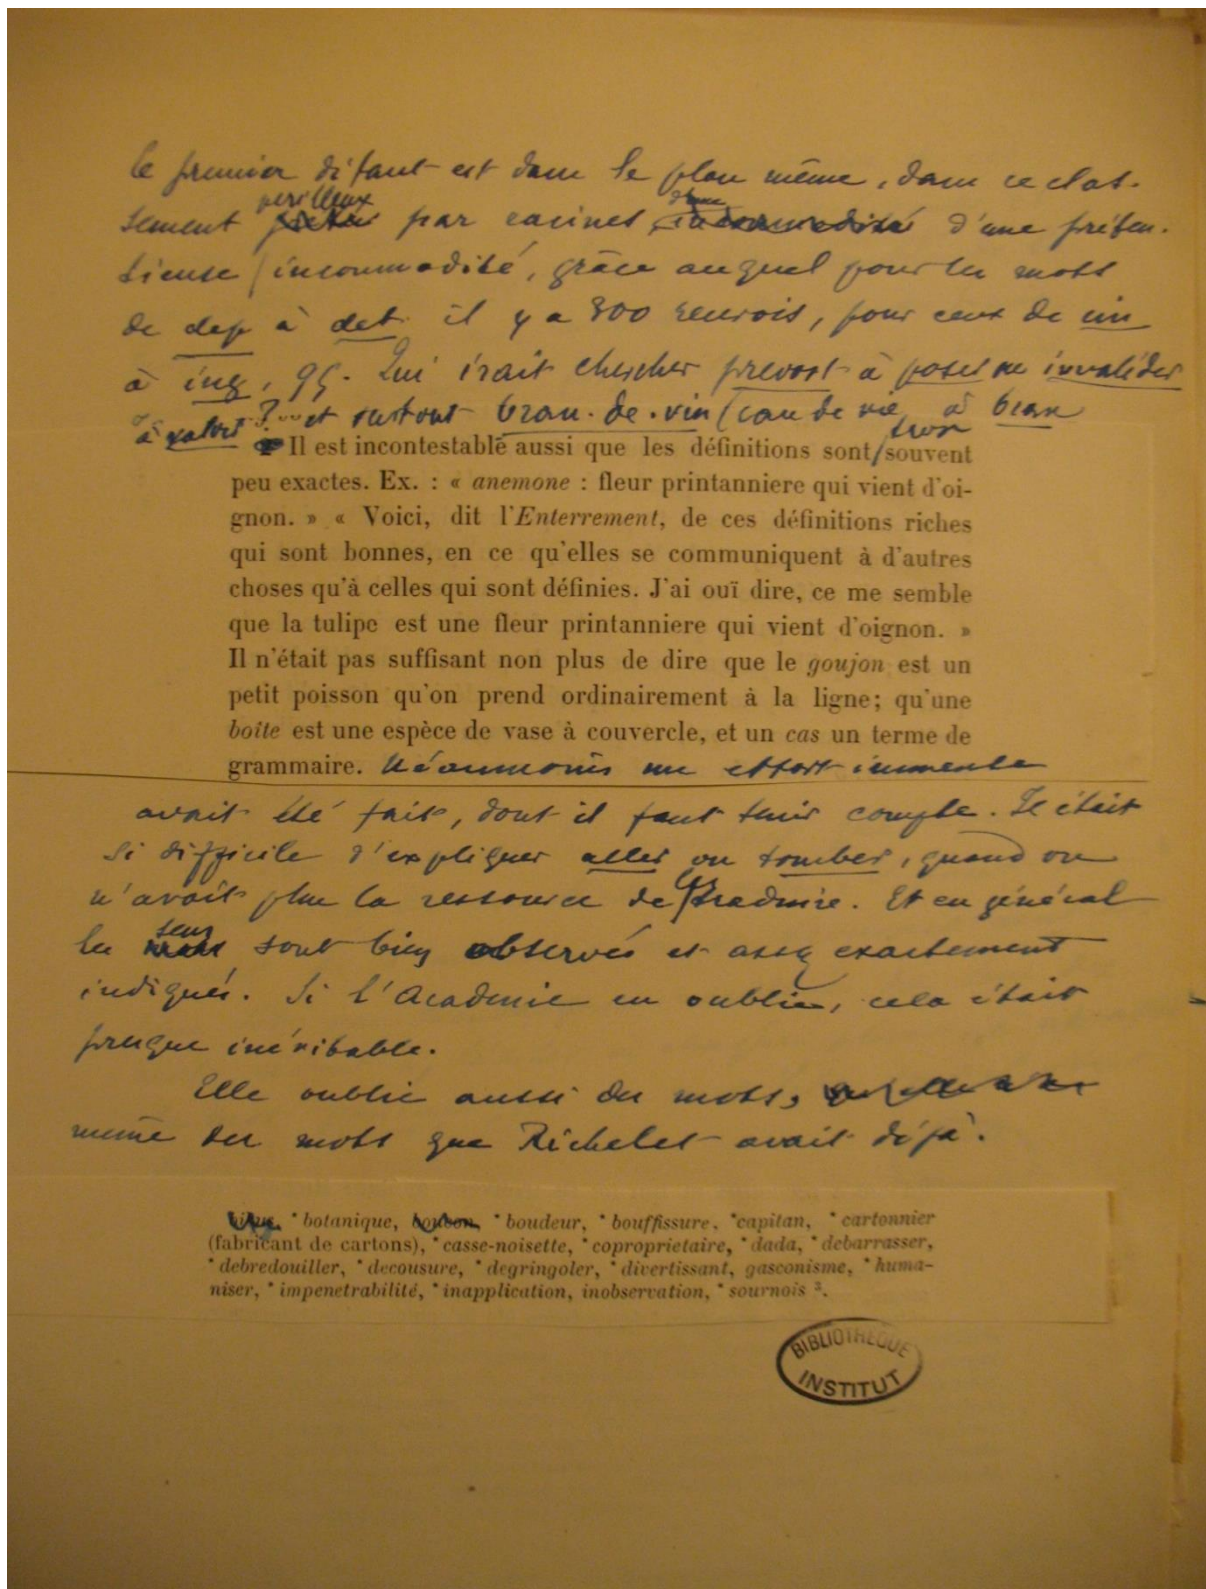 le premier défaut est dans le plan même, dans ce clas-
perilleux d'une
sement par racines, incommodité d'une préten-
tieuse incommodité, grâce auquel pour les mots
de dep à det il y a 300 renvois, pour ceux de im
à ing, 95. Qui irait chercher prevost à poser ou invalider
à valoir ? ... et surtout bran-de-vin (eau de vie à bran
trop
Il est incontestable aussi que les définitions sont/souvent
peu exactes. Ex. : « anemone : fleur printanniere qui vient d'oi-
gnon. » « Voici, dit l'Enterrement, de ces définitions riches
qui sont bonnes, en ce qu'elles se communiquent à d'autres
choses qu'à celles qui sont définies. J'ai ouï dire, ce me semble
que la tulipe est une fleur printanniere qui vient d'oignon. »
Il n'était pas suffisant non plus de dire que le goujon est un
petit poisson qu'on prend ordinairement à la ligne; qu'une
boîte est une espèce de vase à couvercle, et un cas un terme de
grammaire. Néanmoins un effort immense
avait été fait, dont il faut tenir compte. Il était
si difficile d'expliquer aller ou tomber, quand on
n'avait plus la ressource de traduire. Et en général
sens
les mots sont bien observés et assez exactement
indiqués. Si l'Academie en oublie, cela était
presque inévitable.
Elle oublie aussi des mots,
même des mots que Richelet avait déjà.
*botanique, bonbon, *boudeur, *bouffissure, *capitan, *cartonnier
(fabricant de cartons), *casse-noisette, *coproprietaire, *dada, *debarrasser,
*debredouiller, *decousure, *degringoler, *divertissant, gasconisme, *huma-
niser, *impenetrabilité, *inapplication, inobservation, *sournois ².
BIBLIOTHEQUE
INSTITUT